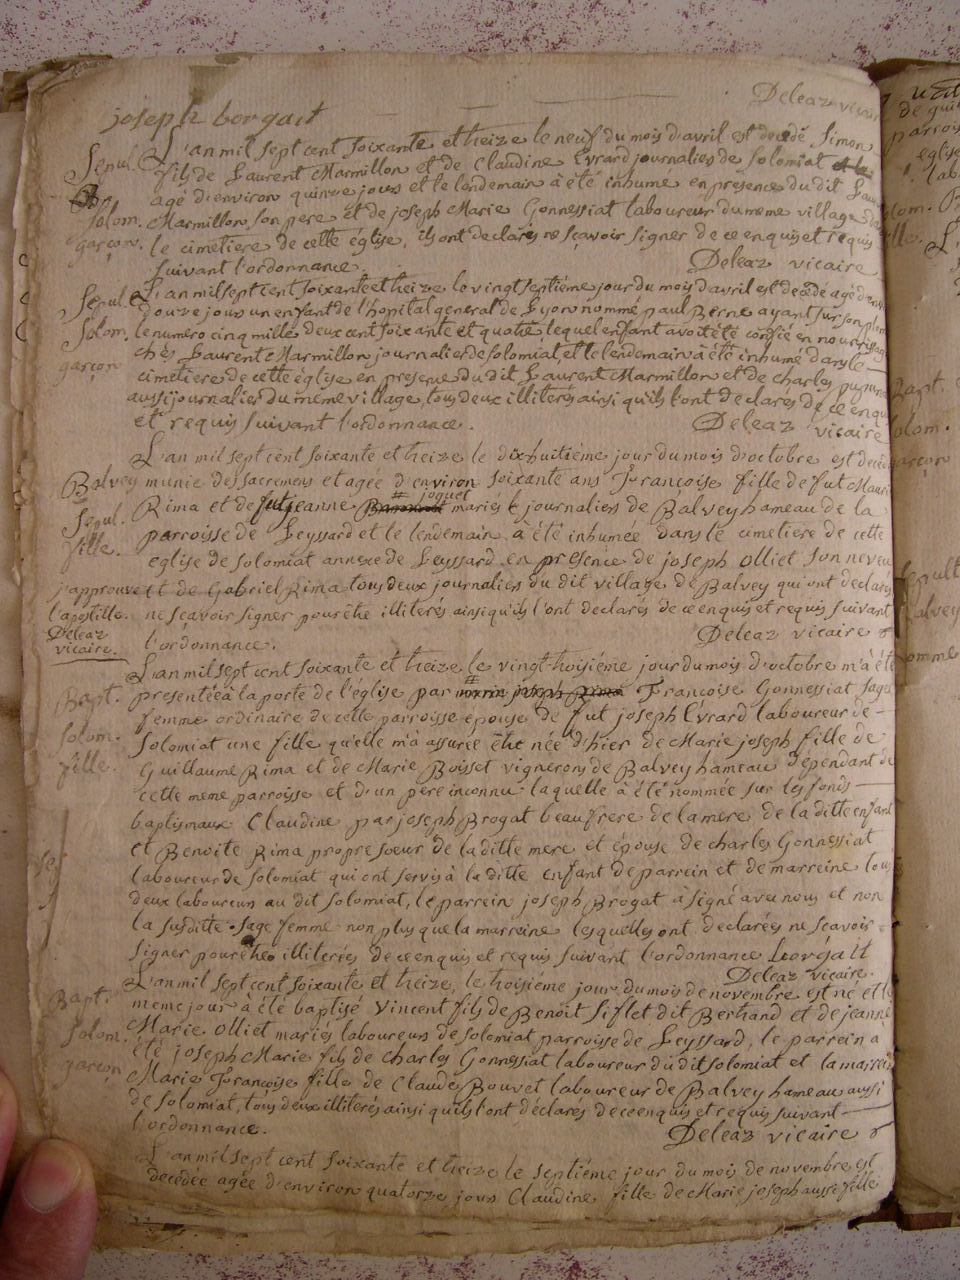 Deleaz vicaire
joseph borgait
L'an mil sept cent soixante et treize le neuf du mois d'avril est decedé Simon
Sepul. fils de Laurent Marmillon et de Claudine Evrard journaliers de Solomiat
agé d'environ quinze jours et le lendemain à été inhumé en presence du dit Lau
Solom. Marmillon son pere et de joseph Marie Gonnessiat laboureur du meme village dans
garçon. le cimetiere de cette église, ils ont declarés ne scavoir signer de ce enquis et requis
suivant l'ordonnance. Deleaz vicaire
Sepul. L'an mil sept cent soixante et treize le vingt septiéme jour du mois d'avril est decedé agé d'en
douze jours un enfant de l'hôpital general de Lyon nommé paul Berne ayant sur son plom
Solom. le numero cinq mille deux cent soixante et quatre lequel enfant avoit été confié en nourrissage
garçon chés Laurent Marmillon journalier de solomiat, et le lendemain à été inhumé dans le
cimetiere de cette église en presence du dit Laurent Marmillon et de charles
aussi journalier du même village, tous deux illiterés ainsi qu'ils l'ont declarés de ce enquis
et requis suivant l'ordonnance. Deleaz vicaire
L'an mil sept cent soixante et treize le dixhuitiéme jour du mois d'octobre est decedée
Balvey munie des sacremens et agée d'environ soixante ans Françoise fille de fut Mauri
Rima et de fut jeanne # joquet mariés journaliers de Balvey hameau de la
Sepul. parroisse de Leyssard et le lendemain à été inhumée dans le cimetiere de cette
fille. eglise de solomiat annexe de Leyssard en presence de joseph Olliet son neveu
j'approuve et de Gabriel Rima tous deux journaliers du dit village de Balvey qui ont declarés
l'apostille. ne scavoir signer pour être illiterés ainsi qu'ils l'ont declarés de ce enquis et requis suivant
Deleaz vicaire. l'ordonnance. Deleaz vicaire
L'an mil sept cent soixante et treize le vingt troisiéme jour du mois d'octobre m'a été
Bapt. presentée à la porte de l'église par Françoise Gonnessiat sage
femme ordinaire de cette parroisse épouse de fut joseph Evrard laboureur de
Solom. Solomiat une fille qu'elle m'a assurée être née d'hier de Marie joseph fille de
fille. Guillaume Rima et de Marie Boisset vignerons de Balvey hameau dépendant de
cette meme parroisse et d'un pere inconnu laquelle à été nommée sur les fonds
baptismaux Claudine par joseph Brogat beaufrere de la mere de la ditte enfant
et Benoite Rima propre sœur de la ditte mere et épouse de charles Gonnessiat
laboureur de solomiat qui ont servis à la ditte enfant de parrein et de marreine tous
deux laboureurs au dit solomiat, le parrein joseph Brogat à signé avec nous et non
la susditte sage femme non plus que la marreine lesquelles ont declarées ne scavoir
signer pour être illiterées de ce enquis et requis suivant l'ordonnance borgait
Deleaz vicaire.
Bapt. L'an mil sept cent soixante et treize, le troisiéme jour du mois de novembre est né et le
meme jour à été baptisé Vincent fils de Benoit Siflet dit Bertrand et de jeanne
Solom. Marie Olliet mariés laboureurs de solomiat parroisse de Leyssard, le parrein à
été joseph Marie fils de charles Gonnessiat laboureur du dit solomiat et la marreine
garçon Marie Françoise fille de Claude Bouvet laboureur de Balvey hameau aussi
de solomiat, tous deux illiterés ainsi qu'ils l'ont déclarés de ce enquis et requis suivant
l'ordonnance. Deleaz vicaire
L'an mil sept cent soixante et treize le septiéme jour du mois de novembre est
decedée agée d'environ quatorze jours Claudine fille de Marie joseph aussi fille